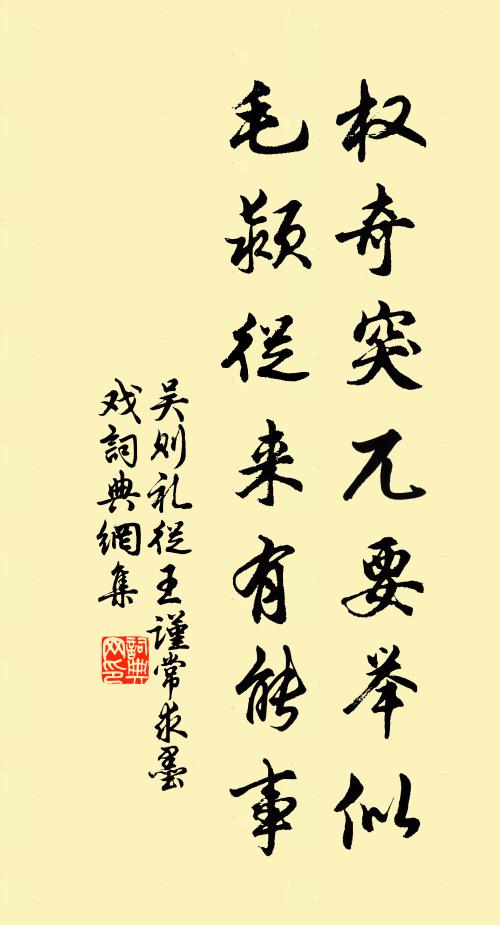 权奇突兀要举似
毛颖从来有能事
吴则礼从王谨常求墨
戏詞典網集
詞典网印